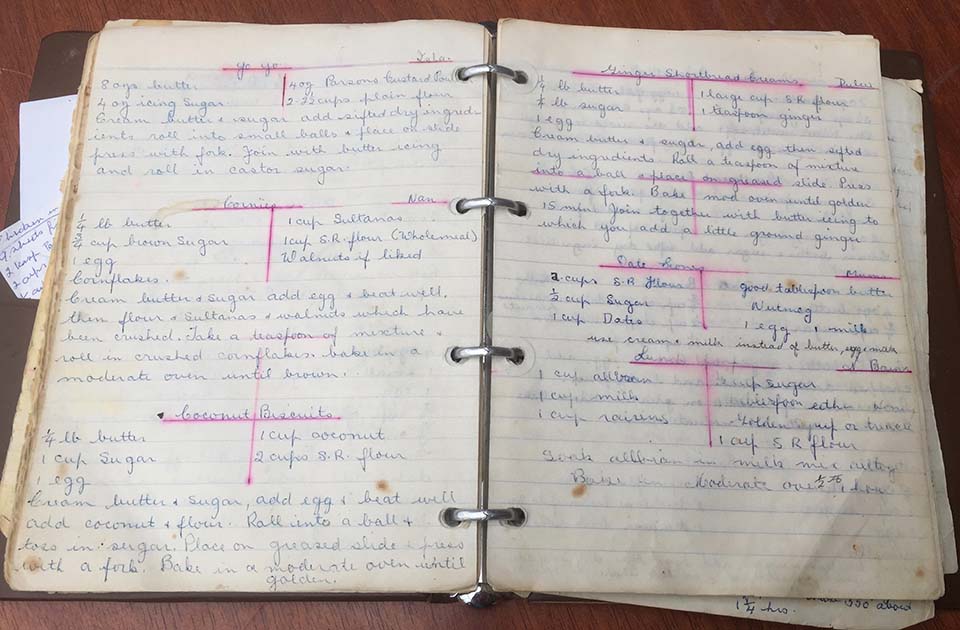 Yo Yo
8 ozs butter
4 oz icing Sugar
4 oz Parsons Custard
2-2½ cups plain flour
Cream butter & sugar add sifted dry ingred-
ients roll into small balls & place on slide
press with fork. Join with butter icing
and roll in castor sugar.
Cornies Nan
¼ lb butter
¾ cup brown Sugar
1 egg
Cornflakes.
1 cup Sultanas
1 cup S.R. flour (Wholemeal)
Walnuts if liked
Cream butter & sugar add egg & beat well.
then flour & Sultanas & walnuts which have
been crushed. Take a teaspoon of mixture &
roll in crushed cornflakes. bake in a
moderate oven until brown.
Coconut Biscuits
¼ lb butter
1 cup Sugar
1 egg
1 cup coconut
2 cups S.R. flour
Cream butter & Sugar, add egg & beat well
add coconut & flour. Roll into a ball &
toss in sugar. Place on greased slide & press
with a fork. Bake in a moderate oven until
golden.
Ginger Shortbread Creams
¼ lb butter
¼ lb sugar
1 egg
1 large cup S.R. flour
1 teaspoon ginger
Cream butter & sugar, add egg then sifted
dry ingredients. Roll a teaspoon of mixture
into a ball & place on greased slide. Press
with a fork. Bake mod oven until golden
15 min. Join together with butter icing to
which you add a little ground ginger
Date
2 cups S.R. flour
½ cup Sugar
1 cup Dates
good tablespoon butter
Nutmeg
1 egg milk
use cream & milk instead of butter, egg & milk
1 cup allbran
1 cup milk
1 cup raisins
cup sugar
either
Golden syrup or treacle
1 cup S.R. flour
Soak allbran in milk mix
Bake in Moderate oven 1 hour
1¼ hrs.